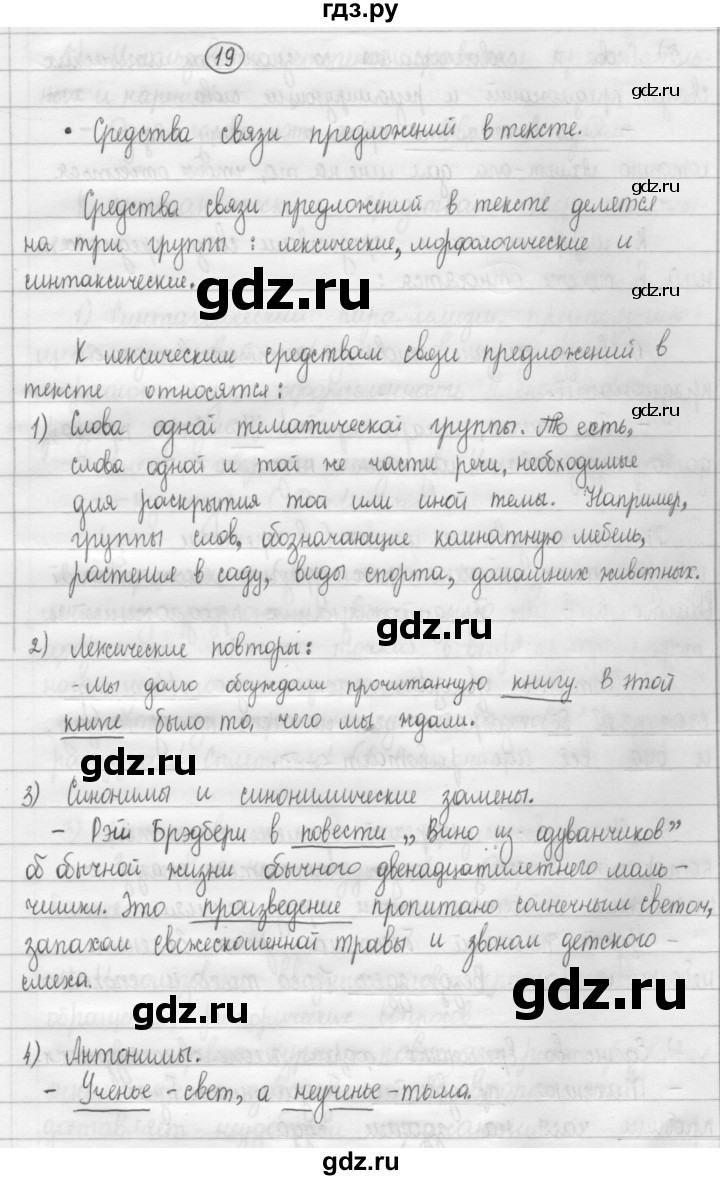 гдз.ру
19
gdz.ru
• Средства связи предложений в тексте.
gdz.ru
gdz.ru
Средства связи предложений в тексте делятся
на три группы: лексические, морфологические и
синтаксические.
gdz.ru
gdz.ru
К лексическим средствам связи предложений в
тексте относятся:
gdz.ru
1) Слова одной тематической группы. То есть,
слова одной и той же части речи, необходимые
для раскрытия той или иной темы. Например,
группы слов, обозначающие комнатную мебель,
растение в саду, виды спорта, домашних животных.
gdz.ru
2) Лексические повторы:
- Мы долго обсуждали прочитанную книгу. В этой
книге было то, чего мы ждали.
gdz.ru
3) Синонимы и синонимические замены.
- Рэй Брэдбери в повести „Вино из одуванчиков"
об обычной жизни обычного двенадцатилетнего маль-
чишки. Это произведение пропитано солнечным светом,
запахом свежескошенной травы и звоном детского
смеха.
gdz.ru
gdz.ru
4) Антонимы.
- Ученье - свет, а неученье - тьма.
gdz.ru
gdz.ru